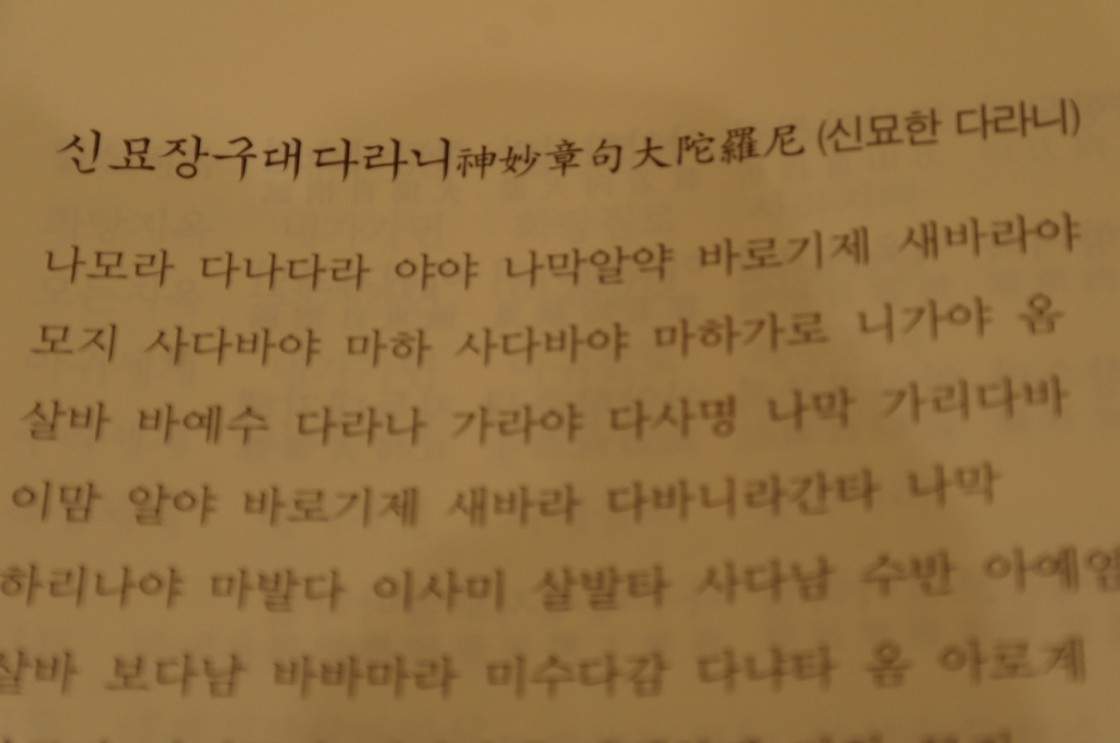 신묘장구대다라니神妙章句大陀羅尼 (신묘한 다라니)
나모라 다나다라 야야 나막알약 바로기제 새바라야
모지 사다바야 마하 사다바야 마하가로 니가야 옴
살바 바예수 다라나 가라야 다사명 나막 가리다바
이맘 알야 바로기제 새바라 다바니라간타 나막
하리나야 마발다 이사미 살발타 사다남 수반 아예염
살바 보다남 바바마라 미수다감 다냐타 옴 아로계